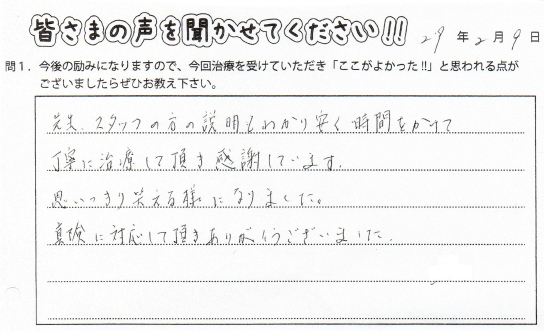 皆さまの声を聞かせてください!! 29年2月9日
問1. 今後の励みになりますので、今回治療を受けていただき「ここがよかった!!」と思われる点が
ございましたらぜひお教え下さい。
先生、スタッフの方の説明もわかり安く時間をかけて
丁寧に治療して頂き感謝しています。
思いっきり笑える様になりました。
真険に対応して頂きありがとうございました。